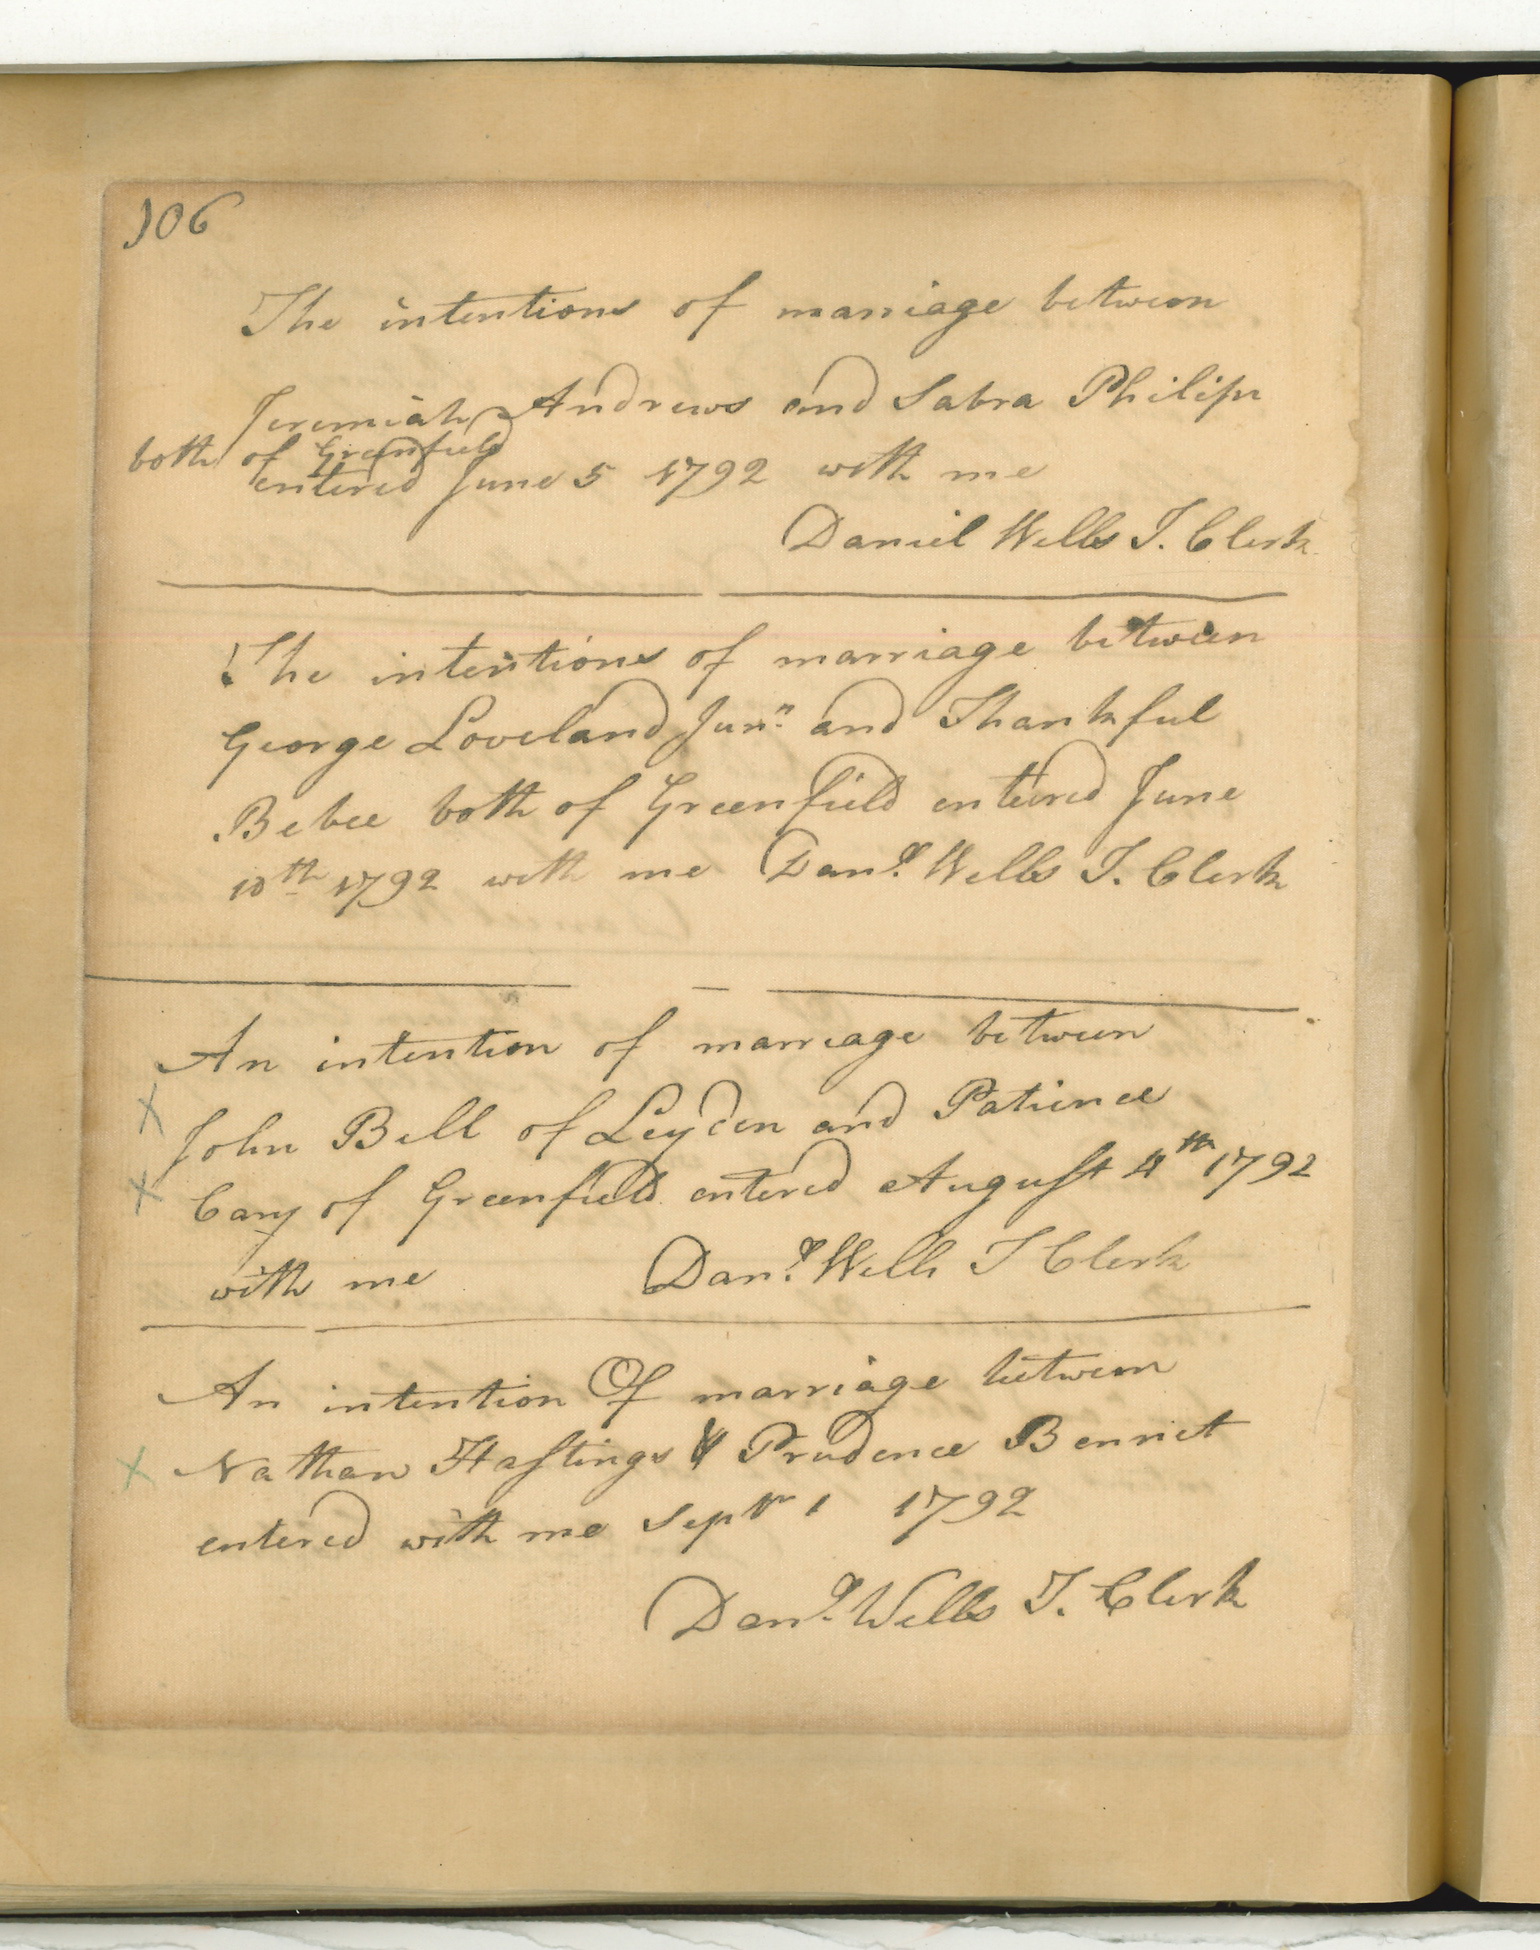 106
The intentions of marriage between
Jeremiah Andrews and Sabra Philips
both of Greenfield
entered June 5 1792 with me
Daniel Wells T. Clerk
The intentions of marriage between
George Loveland Junr. and Thankful
Bebee both of Greenfield entered June
10th 1792 with me Danl. Wells T. Clerk
An intention of marriage between
X
John Bell of Leyden and Patience
X
Cary of Greenfield entered August 4th 1792
with me Danl. Wells T Clerk
An intention Of marriage between
X Nathan Hastings & Prudence Bennet
entered with me Septr 1 1792
Danl. Wells T. Clerk